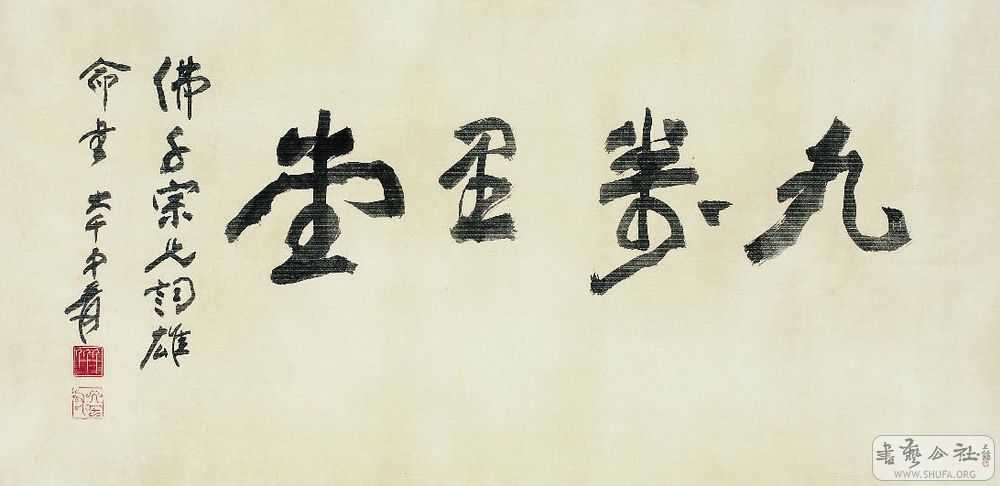 九萬里堂
佛千宗兄詞雄
命書 大千弟爰
書藝公社
WWW.SHUFA.ORG